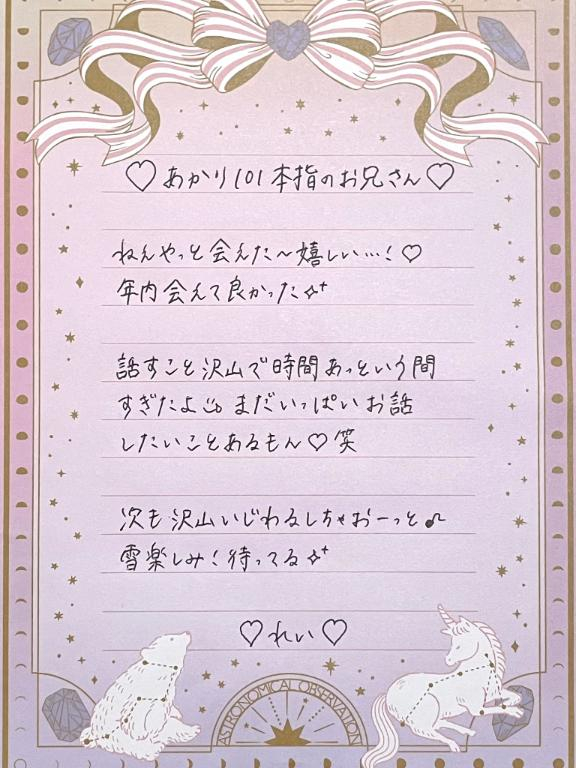 ♡あかり101本指のお兄さん♡
ねんやっと会えた〜嬉しい…!♡
年内会えて良かった✧⁺
話すこと沢山で時間あっという間
すぎたよ まだいっぱいお話
したいことあるもん♡笑
次も沢山いじわるしちゃおーっと♪
雪楽しみ!待ってる✧⁺
♡れい♡
ASTRONOMICAL OBSERVATION